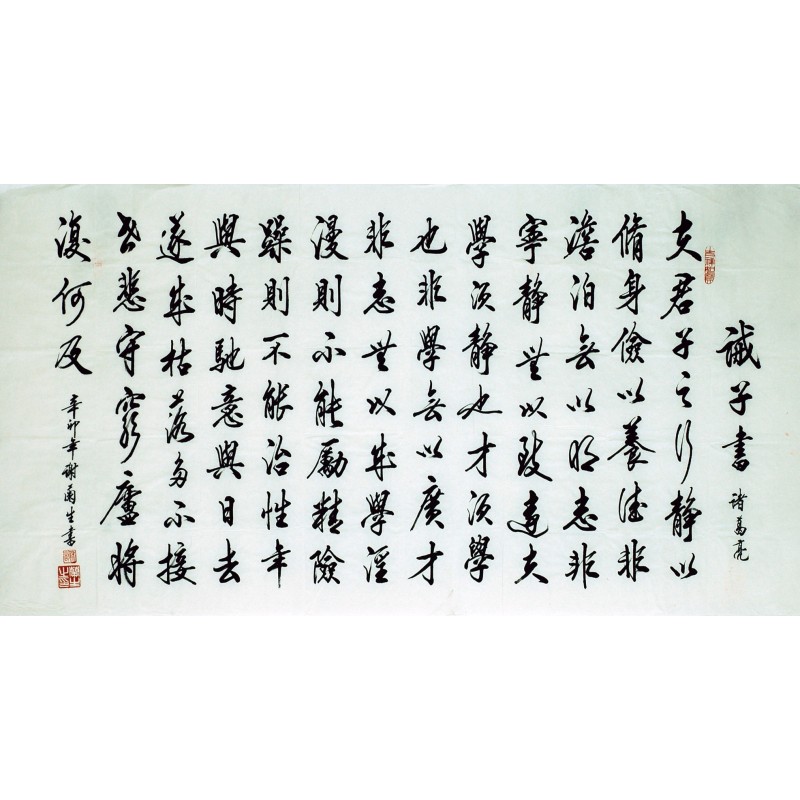 誡子書 諸葛亮
夫君子之行靜以
脩身儉以養德非
澹泊無以明志非
寧靜無以致遠夫
學須靜也才須學
也非學無以廣才
非志無以成學淫
漫則不能勵精險
躁則不能治性年
與時馳意與日去
遂成枯落多不接
世悲守窮廬將
復何及 辛卯年謝生書